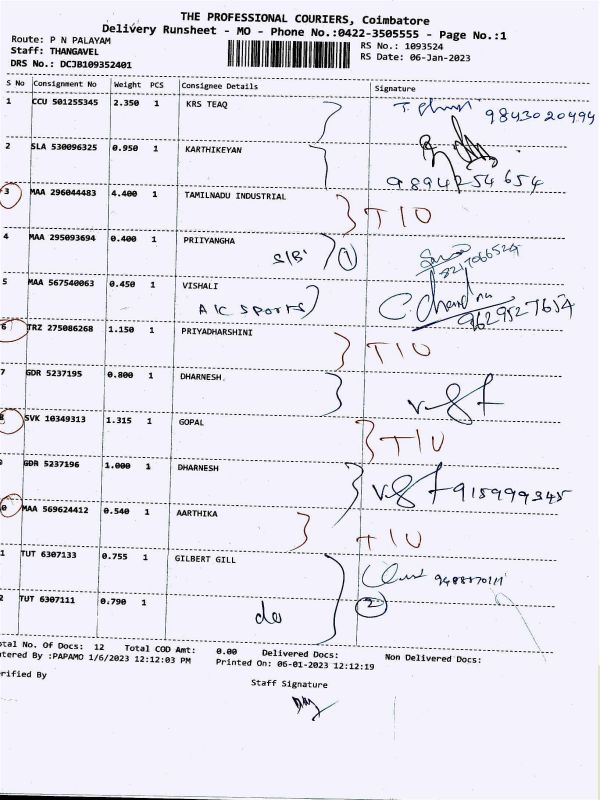 THE PROFESSIONAL COURIERS, Coimbatore
Delivery Runsheet - MO - Phone No.:0422-3505555 - Page No.:1
Route: P N PALAYAM
RS No.: 1093524
Staff: THANGAVEL
RS Date: 06-Jan-2023
DRS No.: DCJB109352401
S No Consignment No Weight PCS Consignee Details Signature
1 CCU 501255345 2.350 1 KRS TEAQ
9843020494
2 SLA 530096325 0.950 1 KARTHIKEYAN
9894254654
3 MAA 296044483 4.400 1 TAMILNADU INDUSTRIAL
T I O
4 MAA 295093694 0.400 1 PRIIYANGHA
S/B 1
5 MAA 567540063 0.450 1 VISHALI
A/C SPORTS
9629527654
6 TRZ 275086268 1.150 1 PRIYADHARSHINI
T I U
7 GDR 5237195 0.800 1 DHARNESH.
8 SVK 10349313 1.315 1 GOPAL
T I U
GDR 5237196 1.000 1 DHARNESH
915999345
0 MAA 569624412 0.540 1 AARTHIKA
T I U
1 TUT 6307133 0.755 1 GILBERT GILL
2 TUT 6307111 0.790 1
do 2
otal No. Of Docs: 12 Total COD Amt: 0.00 Delivered Docs: Non Delivered Docs:
tered By :PAPAMO 1/6/2023 12:12:03 PM Printed On: 06-01-2023 12:12:19
rified By
Staff Signature